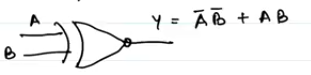 A
B
Y = A̅ B̅ + A B